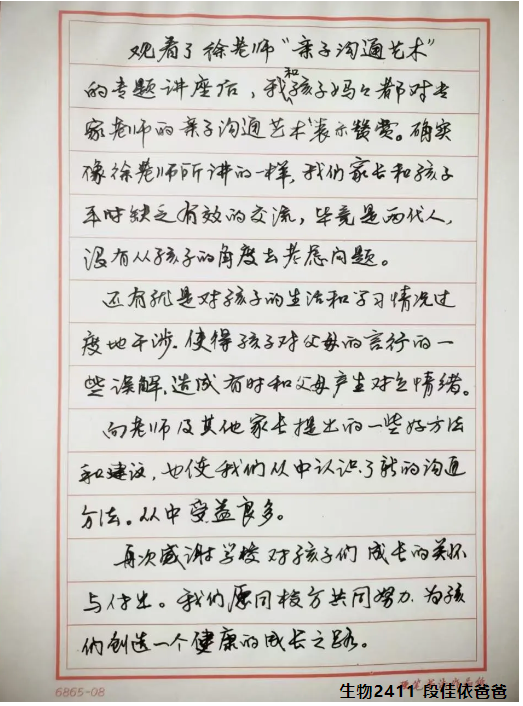 观看了徐老师“亲子沟通艺术”
的专题讲座后，我和孩子妈妈都对专
家老师的亲子沟通艺术表示赞赏。确实
像徐老师所讲的一样，我们家长和孩子
平时缺乏有效的交流，毕竟是两代人，
没有从孩子的角度去考虑问题。
还有就是对孩子的生活和学习情况过
度地干涉，使得孩子对父母的言行的一
些误解，造成有时和父母产生对立情绪。
向老师及其他家长提出的一些好方法
和建议，也使我们从中认识了新的沟通
方法。从中受益良多。
再次感谢学校对孩子们成长的关怀
与付出。我们愿同校方共同努力，为孩
们创造一个健康的成长之路。
6865-08
生物2411 段佳依爸爸